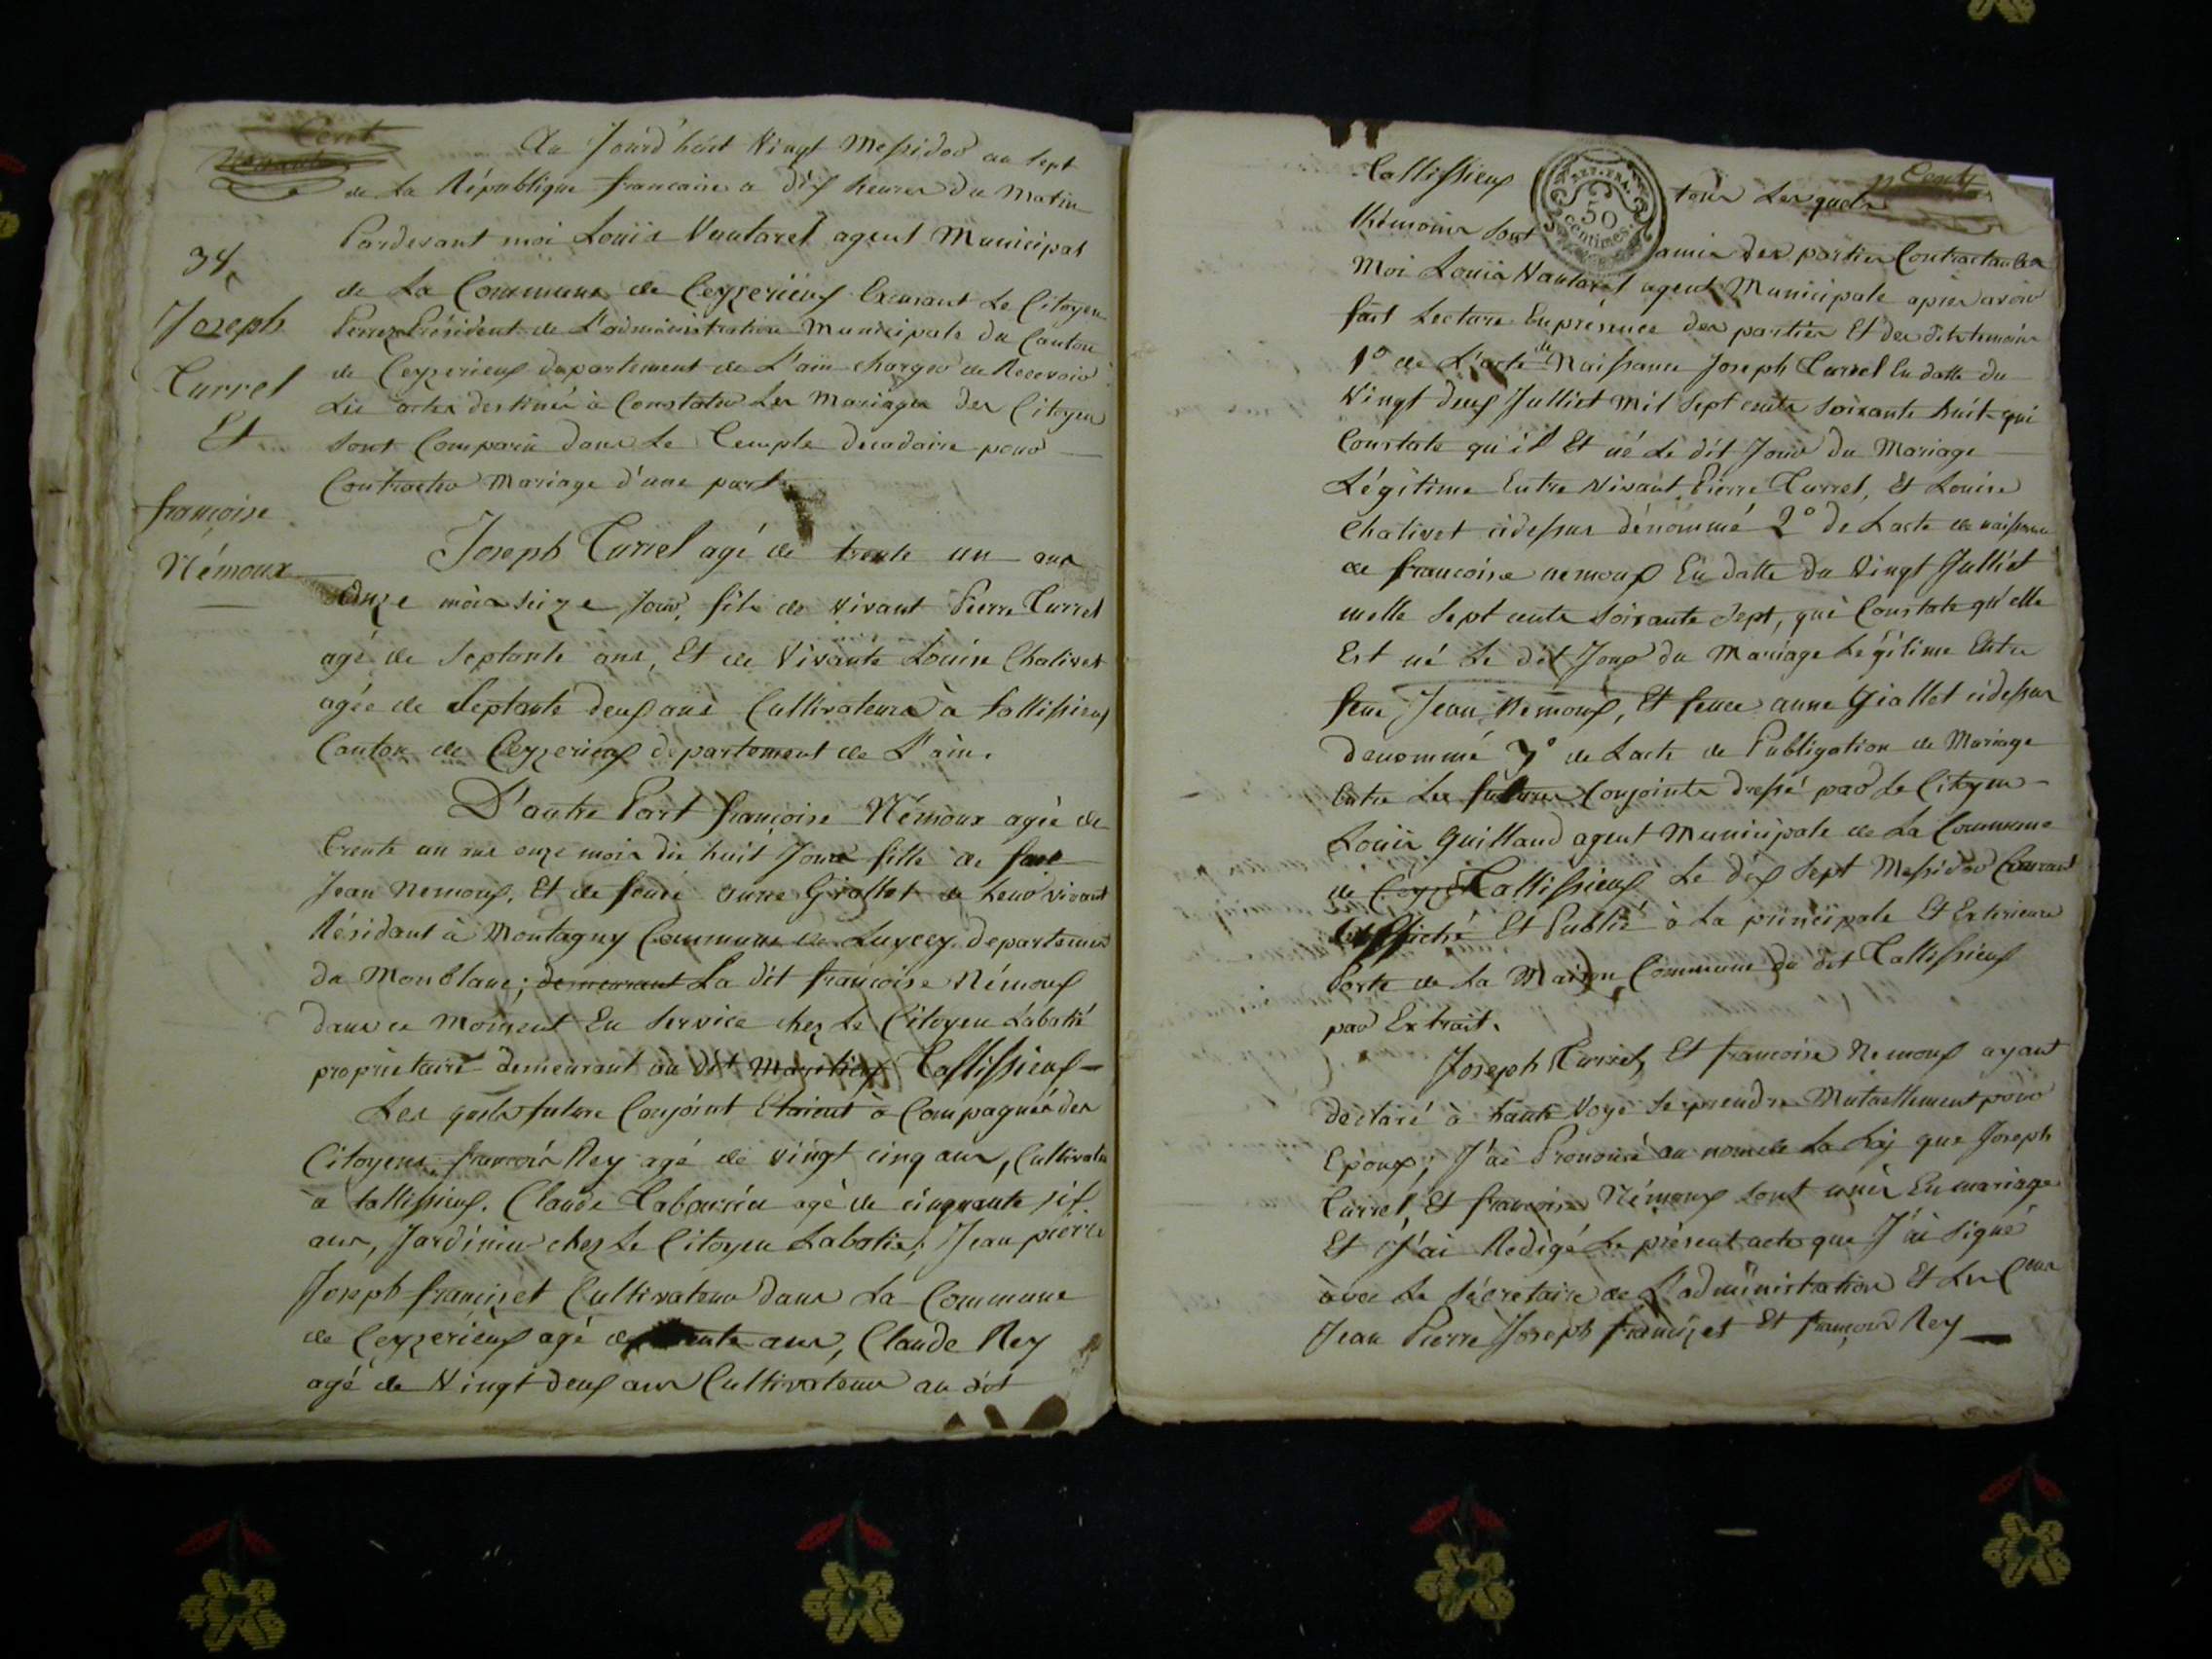 Cent
Au Jourd'huit Vingt Messidor an Sept
de La République francaise a dix heures du Matin
Pardevant moi Louis Vautaret agent Municipal
de La Commune de Ceyzerieux Excusant Le Citoyen
Président de L'administration Municipale du Canton
de Ceyzerieux departement de L'ain chargé de Recevoir
Les actes destiné à Constater Les Mariages des Citoyen
sont Comparû dans Le Temple decadaire pour
Contracter Mariage d'une part
34
Joseph
Turrel
Et
françoise
Némoux
Joseph Turrel agé de trente un ans
onze mois seize Jour, fils de vivant Pierre Turrel
agé de Septante ans, Et de Vivante Louise Chalivet
agée de Septante deux ans Cultivateurs à tallissieux
Canton de Ceyzerieux departement de L'ain.
D'autre Part françoise Némoux agée de
trente un ans onze mois dix huit Jours fille de feue
Jean Nemoux, Et de feue anne Giallet de Leur vivant
Résidant à Montagny Commune de departement
du Monblanc; demeurant La dit francoise Némoux
dans ce Moment En Service chez Le Citoyen Labatié
proprietaire demeurant au dit Tallissieux
Les quels future Conjoint Etaient à Compagnés des
Citoyens francois Rey agé de vingt cinq ans, Cultivateur
à tallissieux. Claude agé de cinquante six
ans, Jardinier chez Le Citoyen Labatie; Jean pierre
Joseph francizet Cultivateur dans La Commune
de Ceyzerieux agé de ans, Claude Rey
agé de Vingt deux ans Cultivateur au dit
Cent
Tallissieux tous Lesquels
thémoins sont amis des parties Contractantes
Moi Louis Vautaret agent Municipale apres avoir
fait Lecture En présence des parties Et des dits temoins
1° de L'acte de Naissance Joseph Turrel En datte du
Vingt deux Julliet Mil Sept cents soixante huit qui
Constate qu'il Et né Le dit Jour du Mariage
Légitime Entre Vivant Pierre Turrel, Et Louise
Chalivet cidessus dénommé 2° de Lacte de naissance
de francoise nemoux En datte du Vingt Julliet
melle Sept cents Soixante Sept, qui Constate qu'elle
Est né Le dit Jour du Mariage Légitime Entre
feue Jean Nemoux, Et feue anne Giallet cidessus
denommé 3° de Lacte de Publigation de Mariage
Entre Les futures Conjoints dressé par Le Citoyen
Louis Guillaud agent Municipale de La Commune
de Tallissieux Le dix Sept Messidor Courant
Affiché Et Publié à La principale Et Exterieure
Porte de La Maison Commune du dit Tallissieux
par Extrait.
Joseph Turrel, Et francoise Nemoux ayant
declaré à haute Voye Se prendre Mutuellement pour
Epoux; J'ai Prononcé au nom de La Loÿ que Joseph
Turrel, Et francoise Némoux sont unis En mariage
Et J'ai Redigé Le présent acte que J'ai signé
avec Le Sécretaire de L'administration Et Les Cens
Jean Pierre Joseph francizet Et françois Rey
REP. FRA.
50
Centimes.